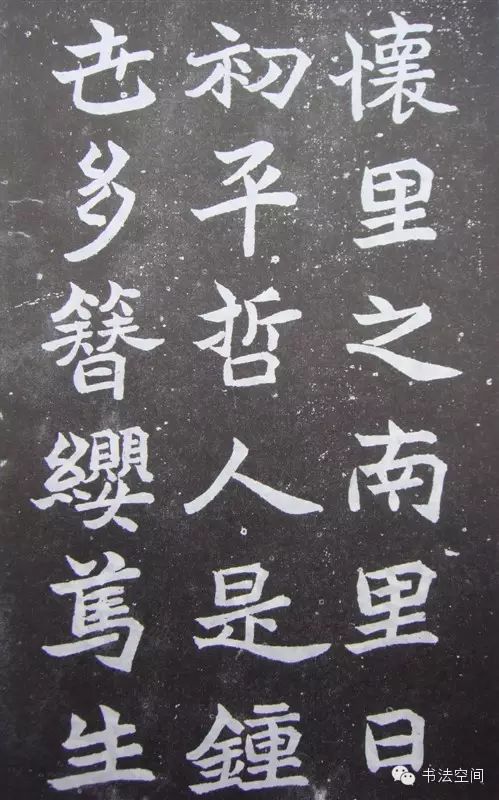 懷里之南里日
初平哲人是鍾
世多簪纓篤生
书法空间